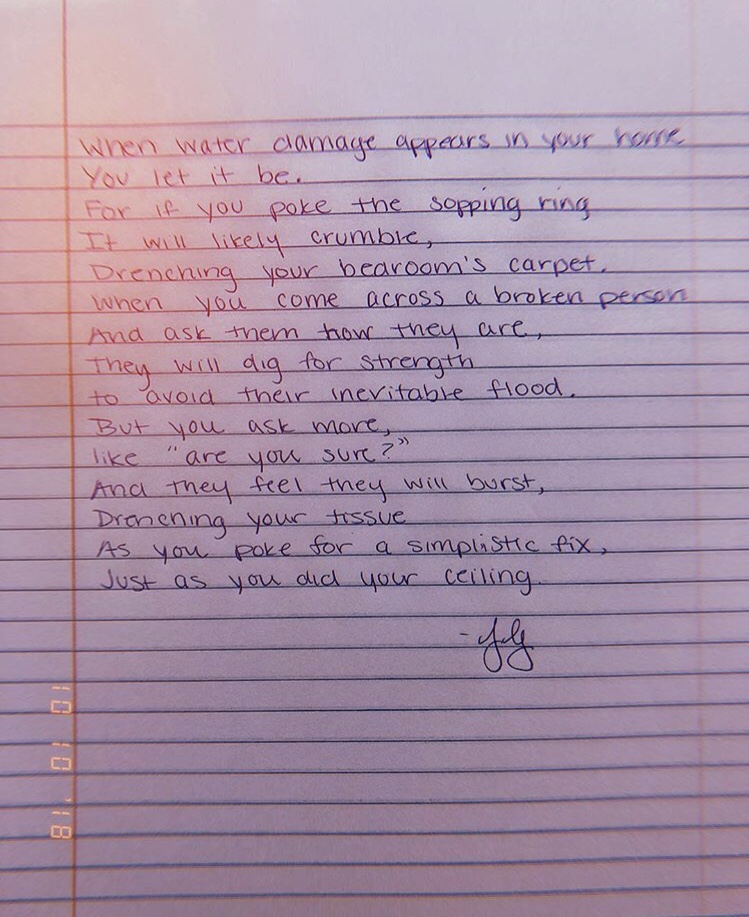 When water damage appears in your home
You let it be.
For if you poke the sopping ring
It will likely crumble,
Drenching your bedroom's carpet.
When you come across a broken person
And ask them how they are,
They will dig for strength
to avoid their inevitable flood.
But you ask more,
like "are you sure?"
And they feel they will burst,
Drenching your tissue
As you poke for a simplistic fix,
Just as you did your ceiling.
10 10 '18